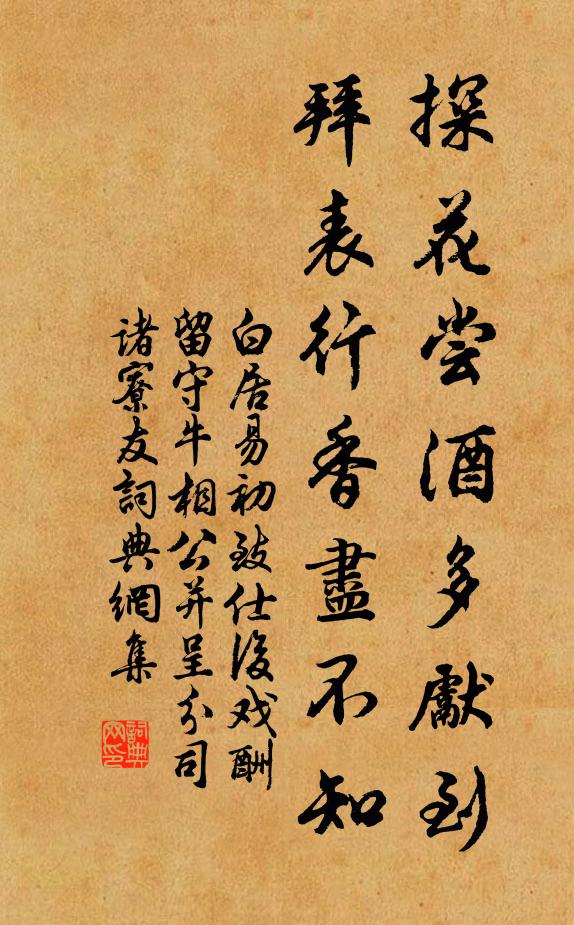 探花尝酒多獻到
拜表行香盡不知
白居易初致仕後戏酬
留守牛相公并呈分司
諸寮友詞典網集
詞典网印